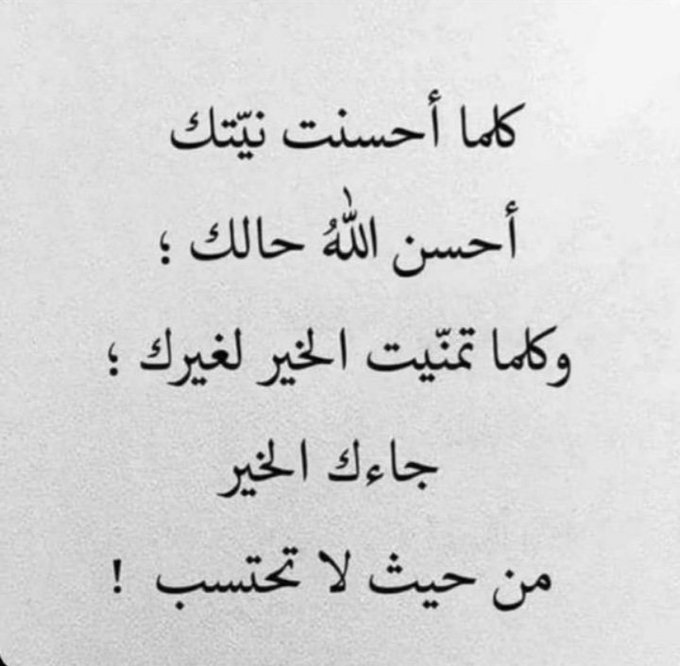 كلما أحسنت نيّتك
أحسن اللهُ حالك ؛
وكلما تمنّيت الخير لغيرك ؛
جاءك الخير
من حيث لا تحتسب !